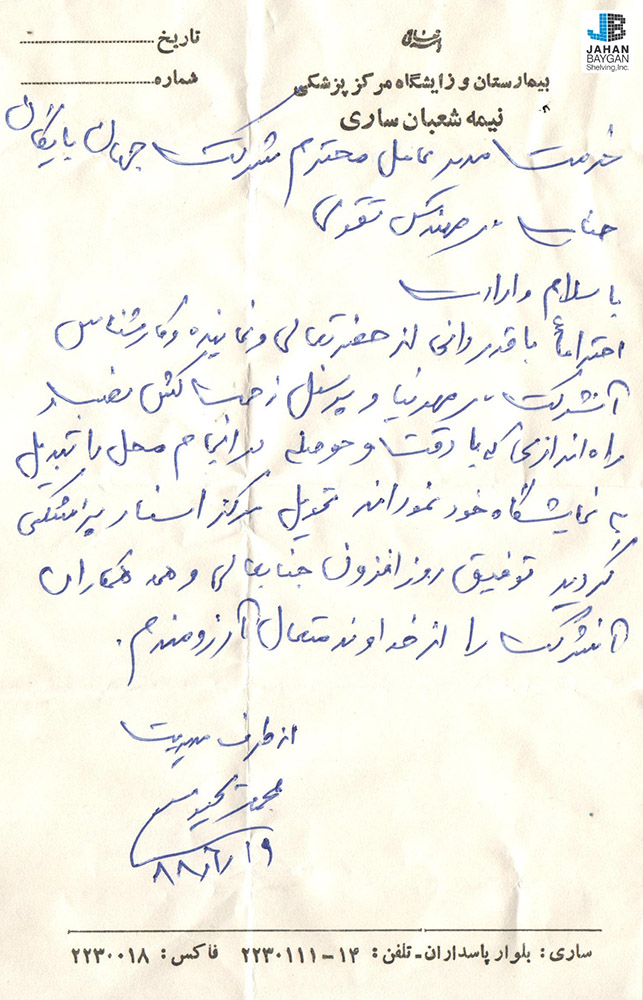 JB
JAHAN
BAYGAN
Shelving,Inc.
تاریخ
شماره
بیمارستان و زایشگاه مرکز پزشکی
نیمه شعبان ساری
خدمت مدیر عامل محترم شرکت جهان بایگان
جناب مهندس تقوی
با سلام و ارادت
احتراماً با قدردانی از حضرتعالی و نماینده و کارشناس
آنشرکت و پرسنل زحمتکش نصب
راه اندازی که با دقت و حوصله در انجام محل را تبدیل
به نمایشگاه خود نموده‌اند تحویل مرکز اسناد پزشکی
گردید توفیق روز افزون جنابعالی و همه همکاران
آنشرکت را از خداوند متعال آرزومندم.
از طرف مدیریت
ساری: بلوار پاسداران ـ تلفن: ۱۴ـ۲۲۳۰۱۱۱ فاکس: ۲۲۳۰۰۱۸